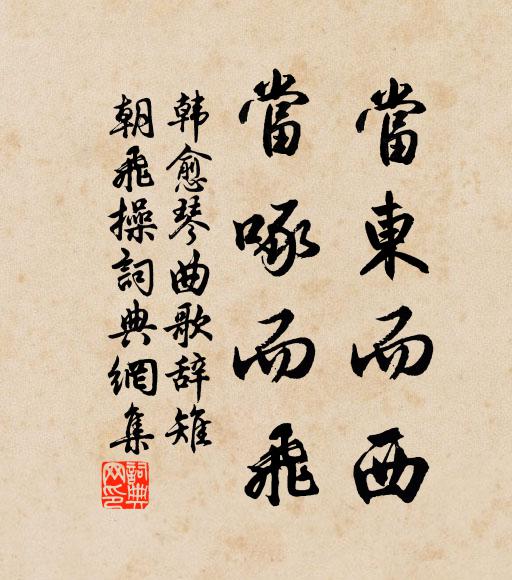 當東而西
當啄而飛
韩愈琴曲歌辞雉
朝飛操詞典網集
詞典网印